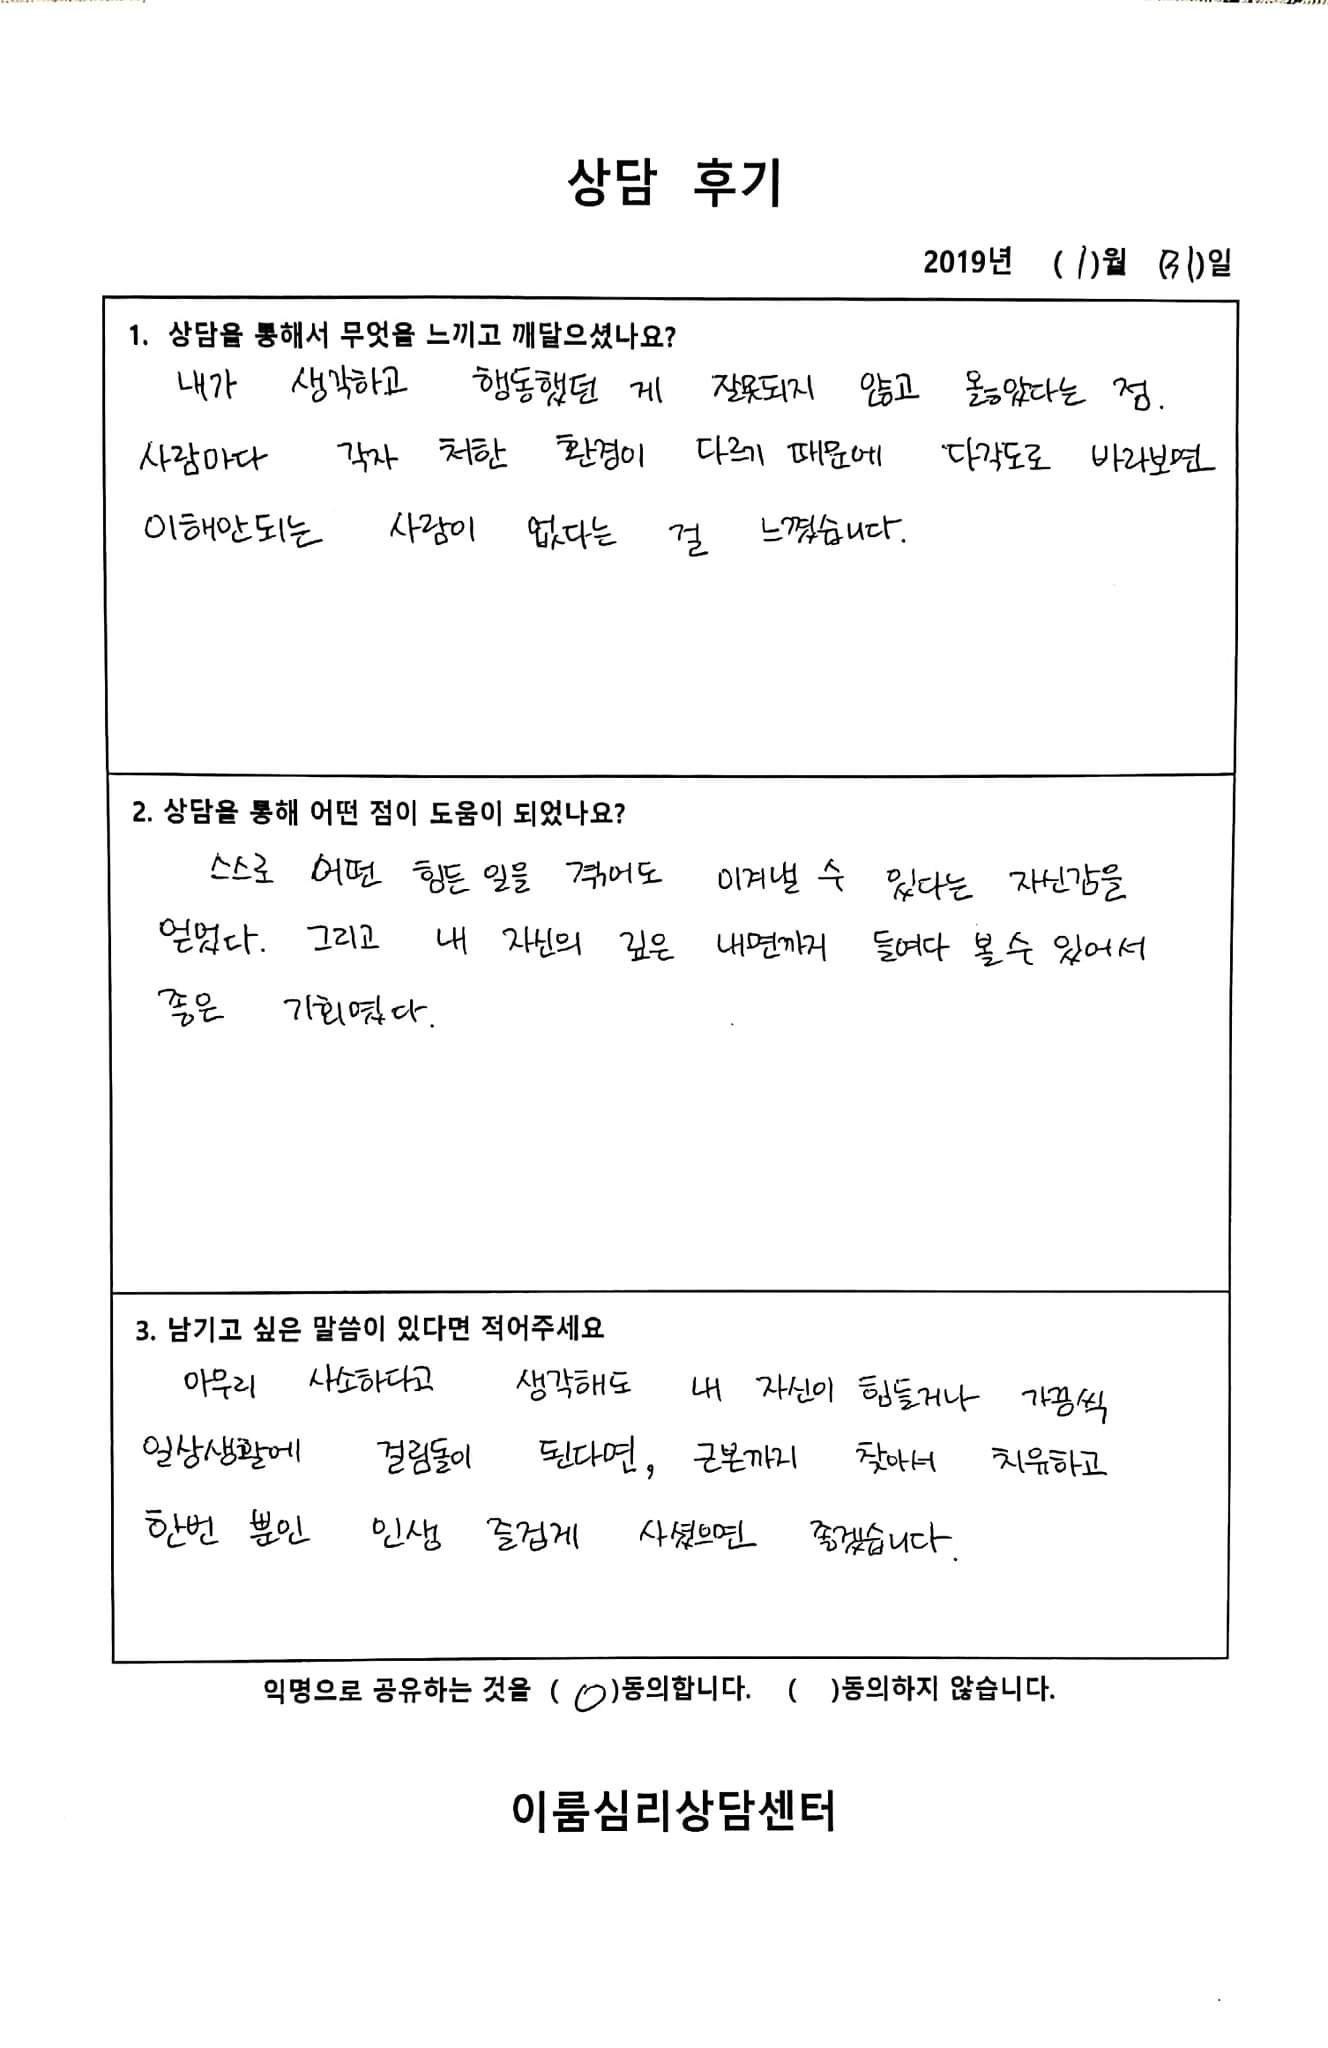 상담 후기
2019년 (1)월 (31)일
1. 상담을 통해서 무엇을 느끼고 깨달으셨나요?
내가 생각하고 행동했던 게 잘못되지 않고 옳았다는 점.
사람마다 각자 처한 환경이 다르기 때문에 다각도로 바라보면
이해안되는 사람이 없다는 걸 느꼈습니다.
2. 상담을 통해 어떤 점이 도움이 되었나요?
스스로 어떤 힘든 일을 겪어도 이겨낼 수 있다는 자신감을
얻었다. 그리고 내 자신의 깊은 내면까지 들여다 볼 수 있어서
좋은 기회였다.
3. 남기고 싶은 말씀이 있다면 적어주세요
아무리 사소하다고 생각해도 내 자신이 힘들거나 가끔씩
일상생활에 걸림돌이 된다면, 근본까지 찾아서 치유하고
한번 뿐인 인생 즐겁게 사셨으면 좋겠습니다.
익명으로 공유하는 것을 ( O )동의합니다. ( )동의하지 않습니다.
이룸심리상담센터